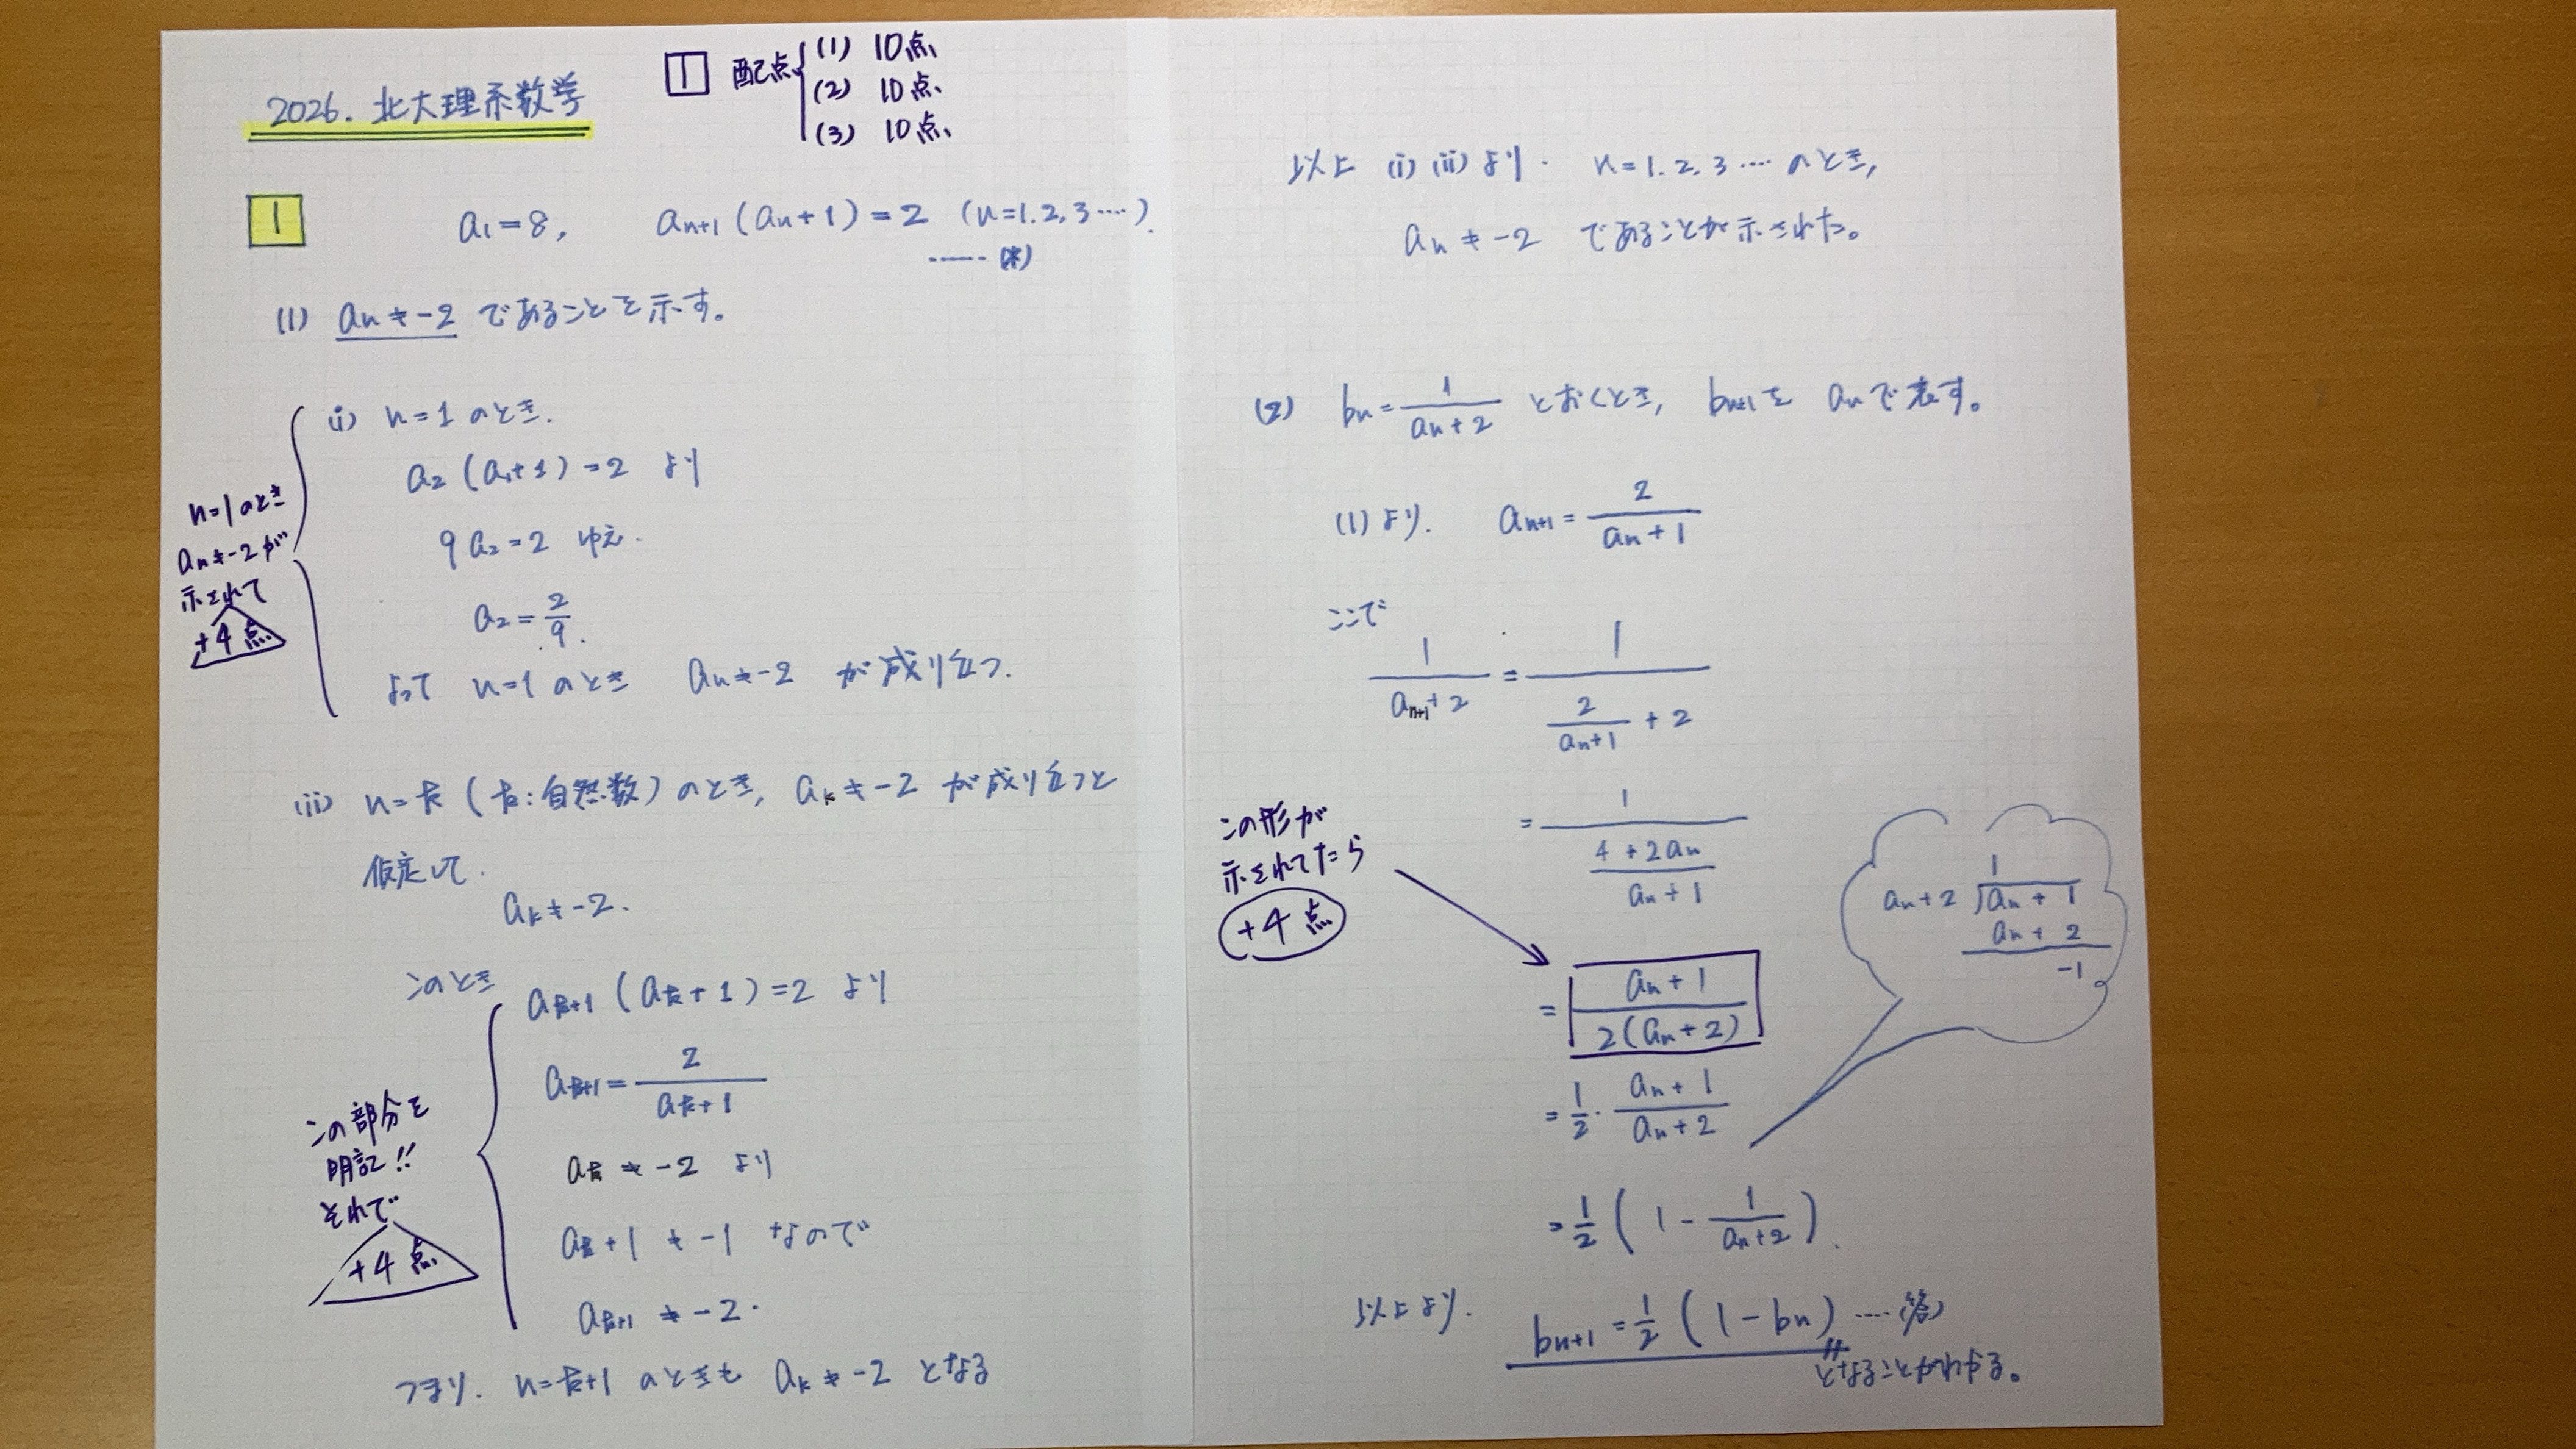 2026. 北大理系数学
1 配点 (1) 10点
(2) 10点
(3) 10点
1 a₁=8, aₙ₊₁(aₙ+1)=2 (n=1.2.3‥‥).
‥‥‥(*)
(1) aₙ≠-2 であることを示す。
(i) n=1のとき.
a₂(a₁+1)=2 より
9a₂=2 ゆえ.
a₂=2/9.
よって n=1のとき aₙ≠-2 が成り立つ.
n=1のとき
aₙ≠-2が
示されて
+4点
(ii) n=k(k:自然数)のとき, aₖ≠-2 が成り立つと
仮定して.
aₖ≠-2.
このとき
aₖ₊₁(aₖ+1)=2 より
aₖ₊₁=2/(aₖ+1)
aₖ≠-2 より
aₖ+1≠-1 なので
aₖ₊₁≠-2.
この部分を
明記!!
それで
+4点
つまり. n=k+1 のときも aₖ≠-2 となる
以上 (i)(ii)より. n=1.2.3‥‥のとき,
aₙ≠-2 であることが示された。
(2) bₙ=1/(aₙ+2) とおくとき, bₙ₊₁を aₙで表す。
(1)より. aₙ₊₁=2/(aₙ+1)
ここで
1/(aₙ₊₁+2)=1/(2/(aₙ+1)+2)
=1/((4+2aₙ)/(aₙ+1))
この形が
示されてたら
+4点
=(aₙ+1)/(2(aₙ+2))
=1/2・(aₙ+1)/(aₙ+2)
=1/2(1-1/(aₙ+2)).
1
aₙ+2 ) aₙ+1
aₙ+2
-1
以上より. bₙ₊₁=1/2(1-bₙ) ‥‥(答)
となることがわかる。